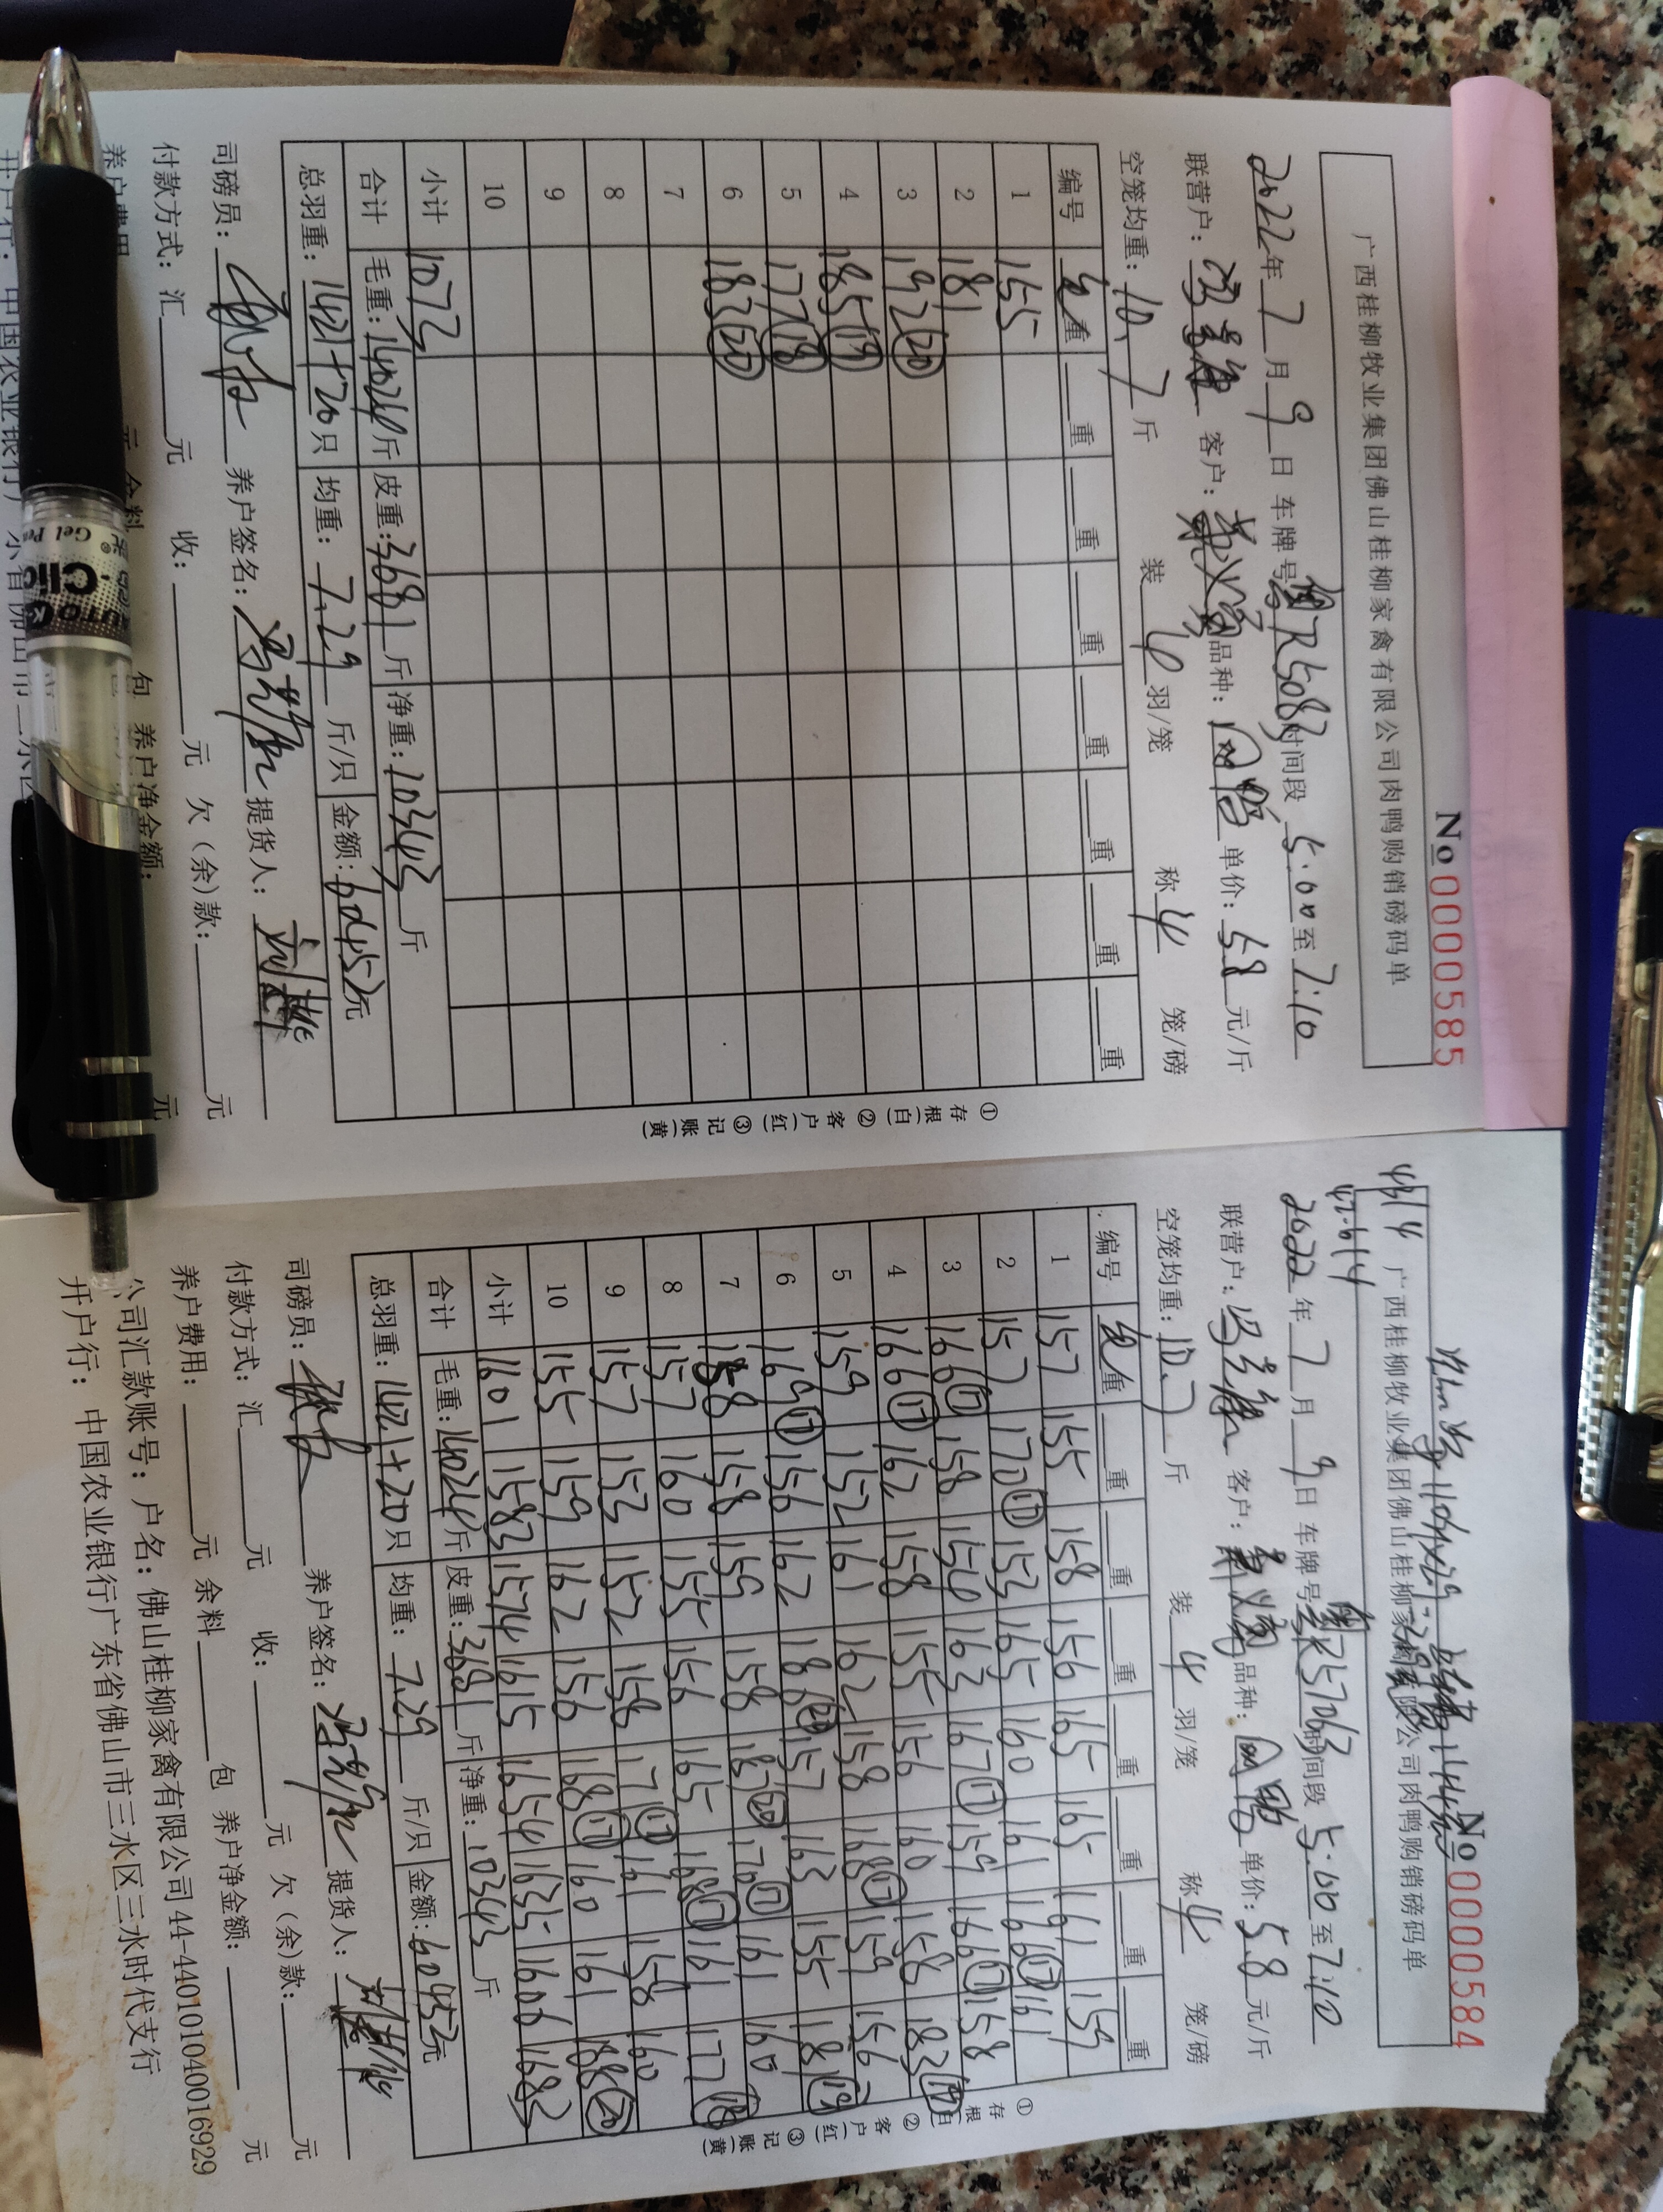 No 0000585
广西桂柳牧业集团佛山桂柳家禽有限公司肉鸭购销磅码单
2022年 7 月 9 日 车牌号 R5083 时间段 5:00 至 7:10
联营户: 客户: 品种: 单价: 5.8 元/斤
空笼均重: 10.7 斤 装 4 羽/笼 称 4 笼/磅
编号 毛重 重 重 重 重 重 重 重
1 155
2 181
3 192 (20)
4 185 (19)
5 177 (18)
6 183 (20)
7
8
9
10
小计 1073
合计 毛重: 14024 斤 皮重: 3681 斤 净重: 10343 斤
总羽重: 1421+20 只 均重: 7.29 斤/只 金额: 60452元
司磅员: 养户签名: 提货人:
付款方式: 汇 元 收: 元 欠(余)款: 元
养户费用 元 余料 包 养户净金额: 元
开户行: 中国农业银行广东省佛山市三水区
①存根(白) ②客户(红) ③记账(黄)
Gel Pen
No 0000584
广西桂柳牧业集团佛山桂柳家禽有限公司肉鸭购销磅码单
2022年 7 月 9 日 车牌号 时间段 5:00 至 7:10
联营户: 客户: 品种: 单价: 5.8 元/斤
空笼均重: 10.7 斤 装 4 羽/笼 称 4 笼/磅
编号 毛重 重 重 重 重 重 重 重
1 157 155 158 156 165 165 161 159
2 157 170 (17) 153 165 160 161 166 (17) 161
3 166 (17) 158 156 163 167 (17) 159 166 (17) 158
4 166 (17) 162 158 155 156 160 158 183 (19)
5 159 152 161 162 158 168 (17) 159 156
6 169 (17) 156 162 186 (20) 157 163 155 181 (19)
7 158 158 159 158 187 (20) 176 (17) 161 160
8 157 160 155 156 165 168 (17) 161 177 (18)
9 157 153 152 158 171 (17) 161 158 160
10 155 159 162 156 168 (17) 160 161 188 (20)
小计 1601 1583 1574 1615 1654 1635 1606 1682
合计 毛重: 14024 斤 皮重: 3681 斤 净重: 10343 斤
总羽重: 1421+20 只 均重: 7.29 斤/只 金额: 60452元
司磅员: 养户签名: 提货人:
付款方式: 汇 元 收: 元 欠(余)款: 元
养户费用: 元 余料 包 养户净金额: 元
公司汇款账号: 户名: 佛山桂柳家禽有限公司 44-440101040016929
开户行: 中国农业银行广东省佛山市三水区三水时代支行
①存根(白) ②客户(红) ③记账(黄)